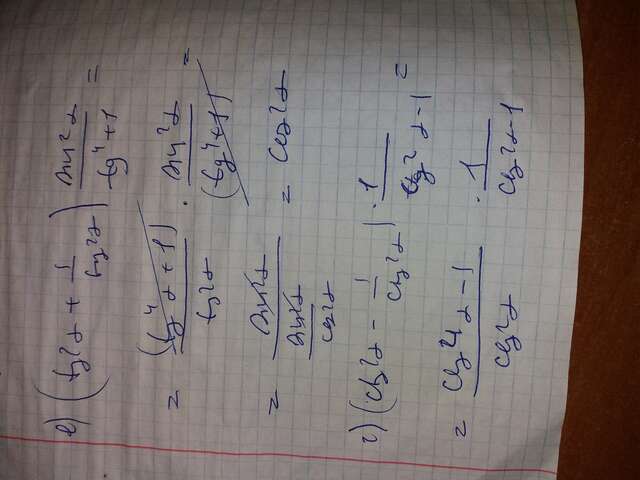 в) (tg²α + 1/tg²α) sin²α/tg⁴+1 =
= (tg⁴α+1)/tg²α · sin²α/(tg⁴+1) =
= sin²α/(sin²α/cos²α) = cos²α
г) (ctg²α - 1/ctg²α) · 1/ctg²α-1 =
= ctg⁴α-1/ctg²α · 1/ctg²α-1